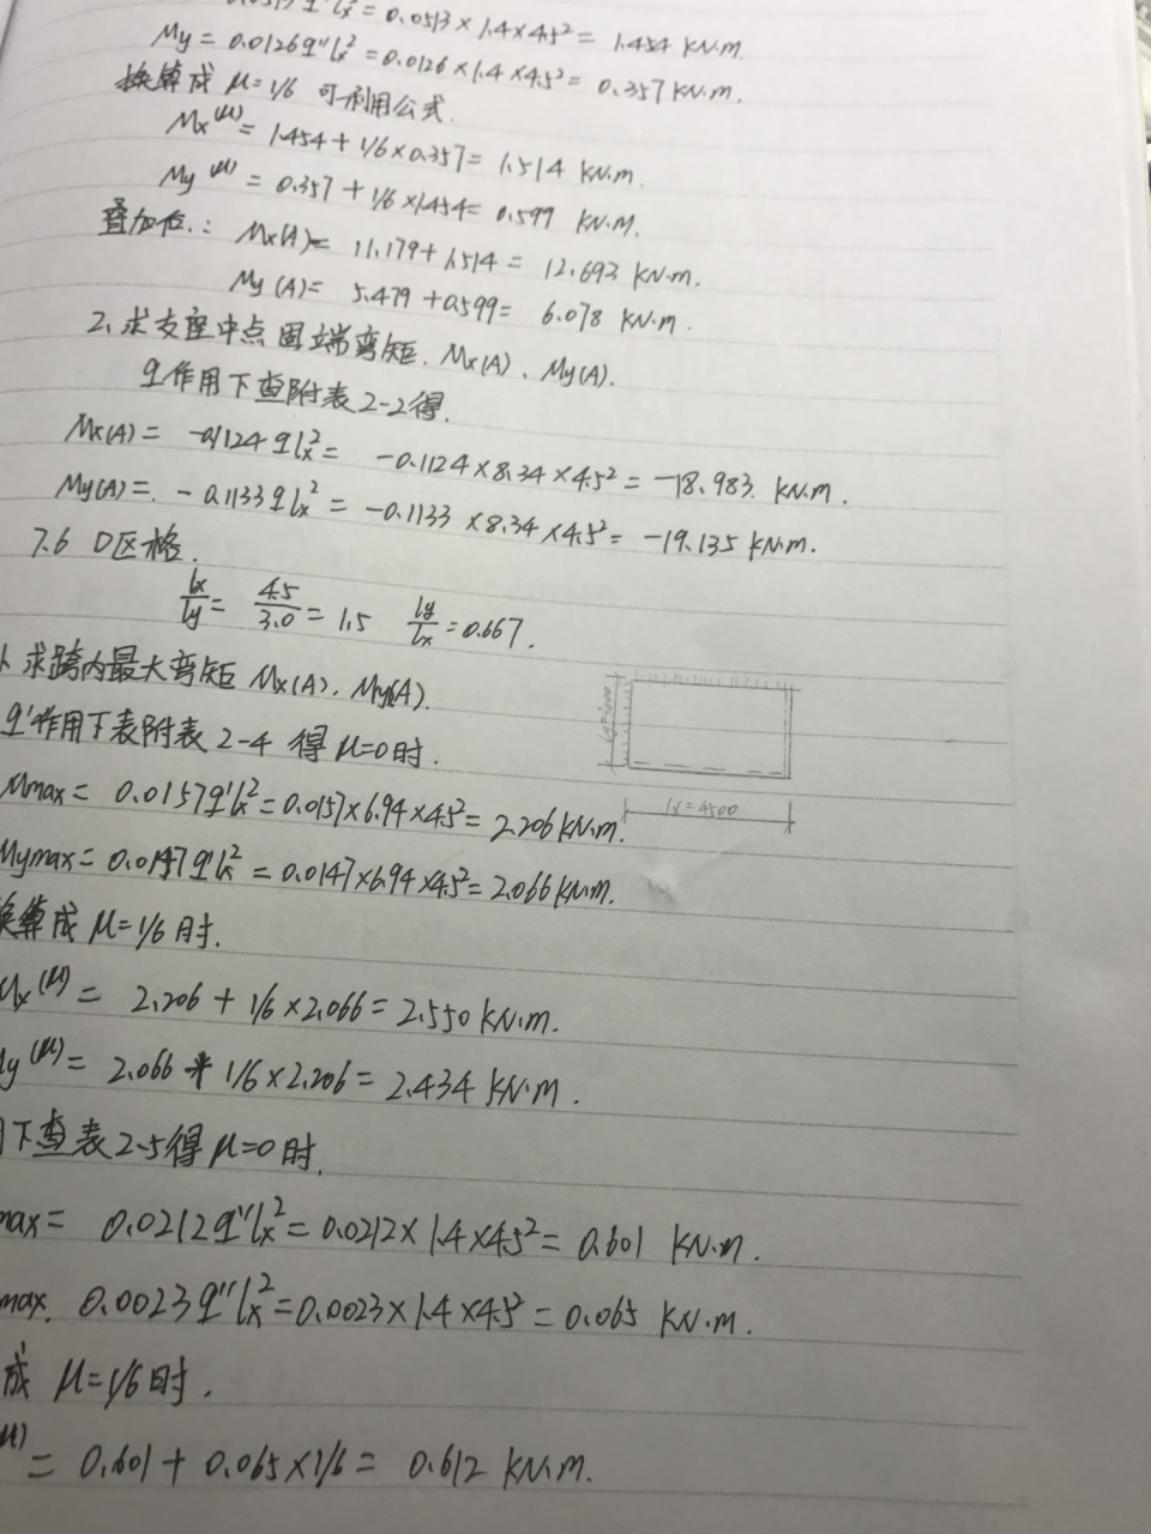 q''lx² = 0.0513×1.4×4.5² = 1.454 KN·m.
My = 0.0126q''lx² = 0.0126×1.4×4.5² = 0.357 KN·m.
换算成 μ=1/6 可利用公式.
Mx(μ) = 1.454 + 1/6×0.357 = 1.514 KN·m.
My(μ) = 0.357 + 1/6×1.454 = 0.599 KN·m.
叠加后: Mx(A) = 11.179 + 1.514 = 12.693 KN·m.
My(A) = 5.479 + 0.599 = 6.078 KN·m.
2、求支座中点固端弯矩. Mx(A)、My(A).
q作用下查附表2-2得.
Mx(A) = -0.1124qlx² = -0.1124×8.34×4.5² = -18.983 KN·m.
My(A) = -0.1133qlx² = -0.1133×8.34×4.5² = -19.135 KN·m.
7.6 D区格.
lx/ly = 4.5/3.0 = 1.5 ly/lx = 0.667.
1、求跨内最大弯矩 Mx(A)、My(A).
q'作用下表附表2-4 得 μ=0时.
Mmax = 0.0157q'lx² = 0.0157×6.94×4.5² = 2.206 KN·m.
lx=4500
Mymax = 0.0147q'lx² = 0.0147×6.94×4.5² = 2.066 KN·m.
换算成 μ=1/6时.
Mx(μ) = 2.206 + 1/6×2.066 = 2.550 KN·m.
My(μ) = 2.066 + 1/6×2.206 = 2.434 KN·m.
下查表2-5得 μ=0时.
max = 0.0212q''lx² = 0.0212×1.4×4.5² = 0.601 KN·m.
max. 0.0023q''lx² = 0.0023×1.4×4.5² = 0.065 KN·m.
成 μ=1/6时.
μ) = 0.601 + 0.065×1/6 = 0.612 KN·m.